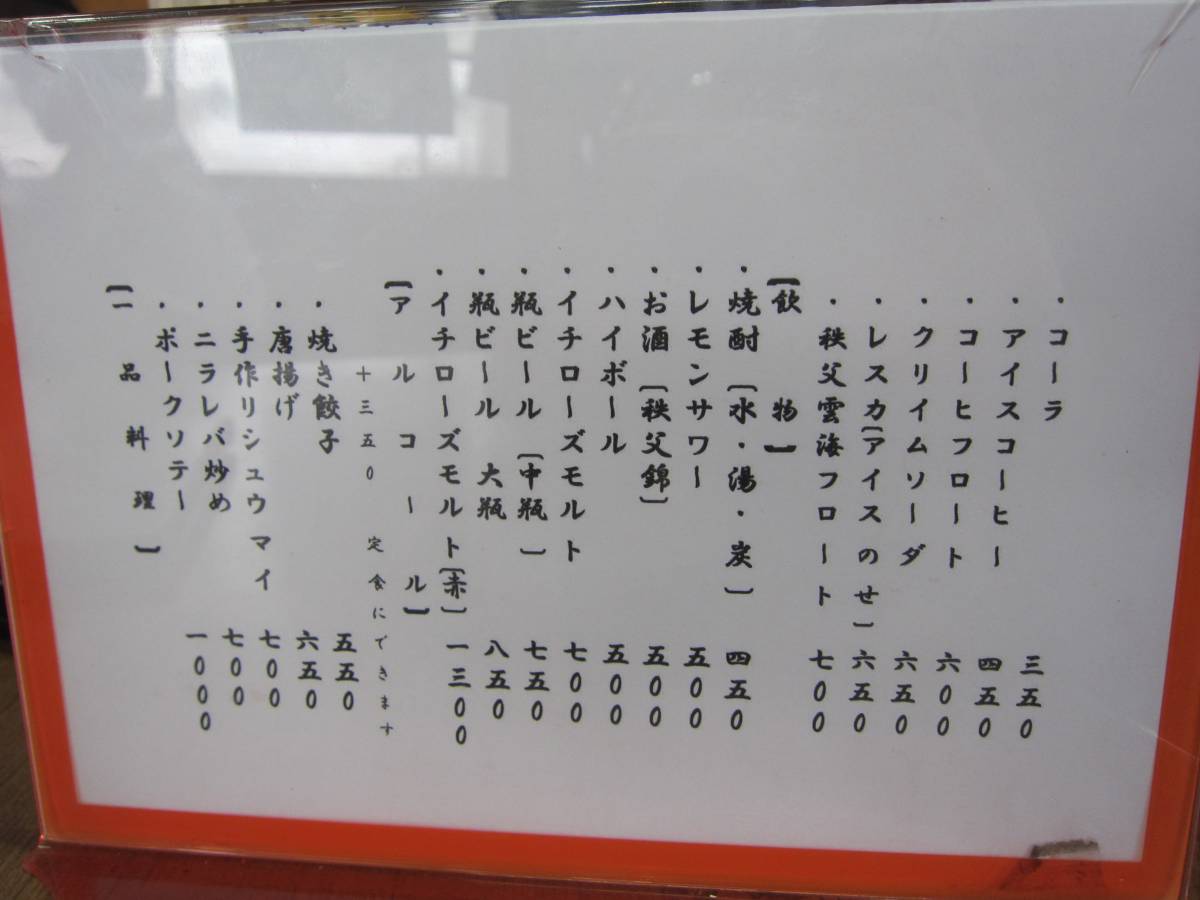 【一品料理】
・ポークソテー 一000
・ニラレバ炒め 七00
・手作リシュウマイ 七00
・唐揚げ 六五0
・焼き餃子 五五0
＋三五0 定食にできます
【アルコール】
・イチローズモルト〔赤〕 一三00
・瓶ビール 大瓶 八五0
・瓶ビール〔中瓶〕 七五0
・イチローズモルト 七00
・ハイボール 五00
・お酒〔秩父錦〕 五00
・レモンサワー 五00
・焼酎〔水・湯・炭〕 四五0
【飲物】
・秩父雲海フロート 七00
・レスカ〔アイスのせ〕 六五0
・クリイムソーダ 六五0
・コーヒフロート 六00
・アイスコーヒー 四五0
・コーラ 三五0